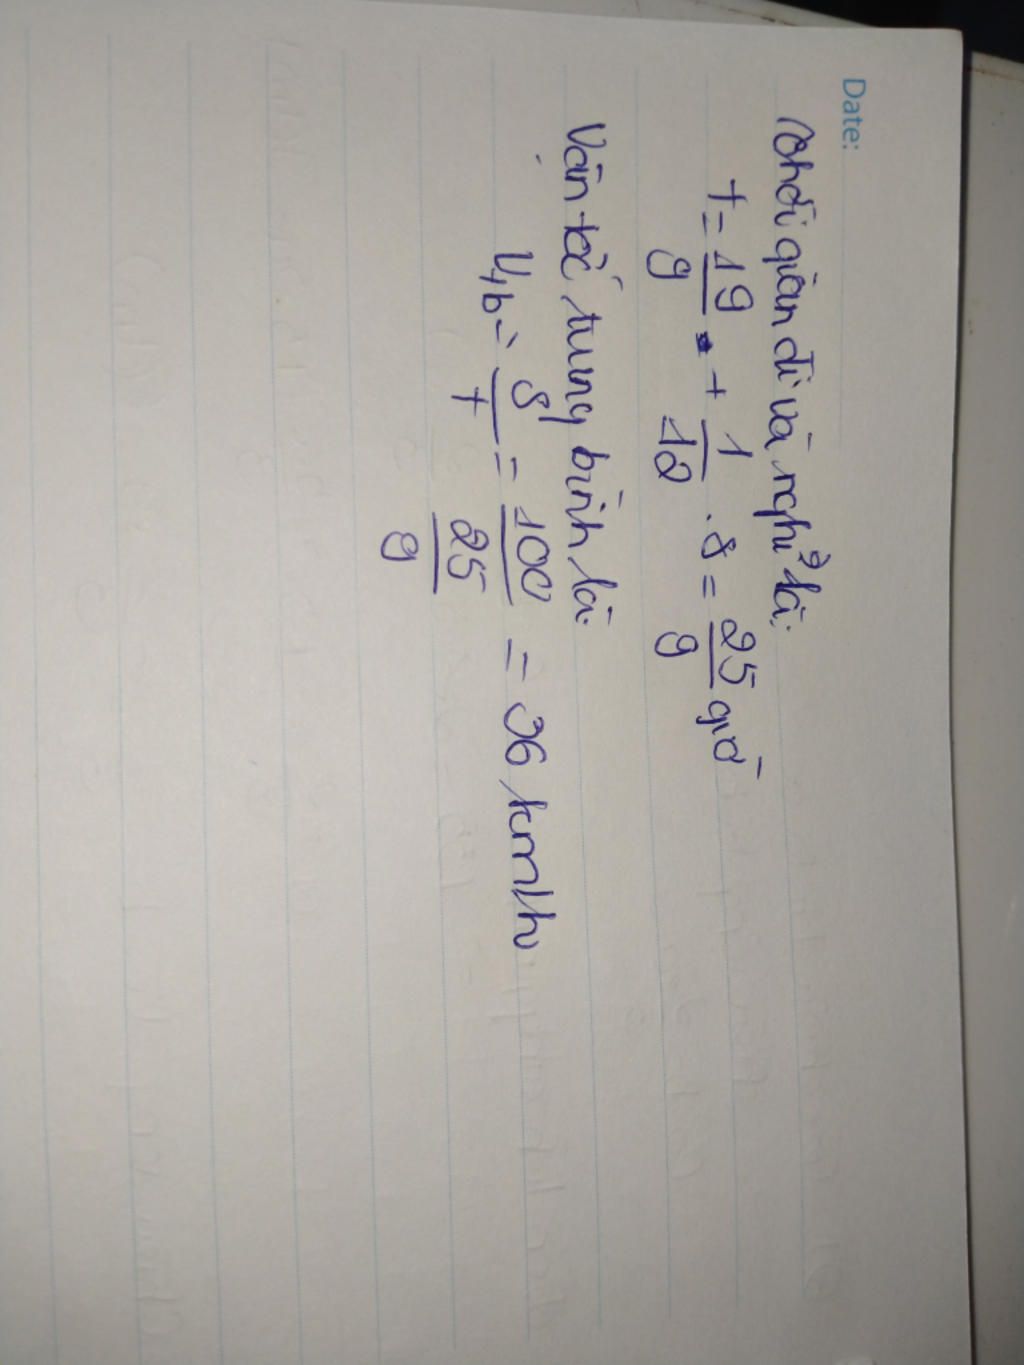 Date:
Thời gian đi và nghỉ là:
t = 19/9 + 1/12 . 8 = 25/9 giờ
Vân tốc trung bình là.
Vtb = S/t = 100/(25/9) = 36 km/h